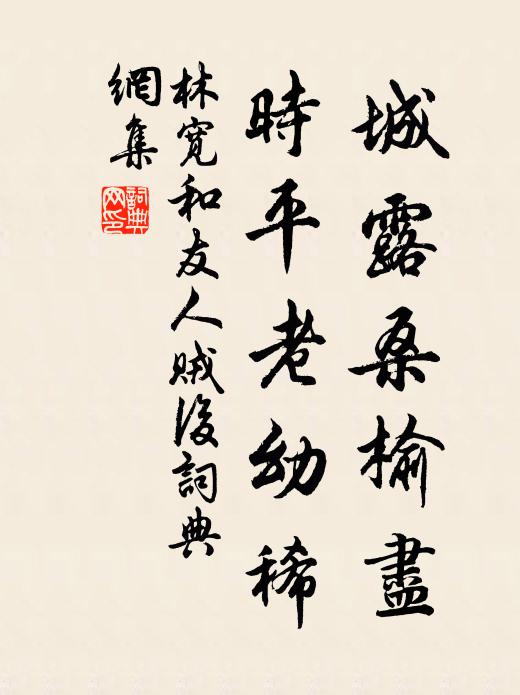 城露桑榆盡
時平老幼稀
林寬和友人賊後詞典
網集
詞典
网印